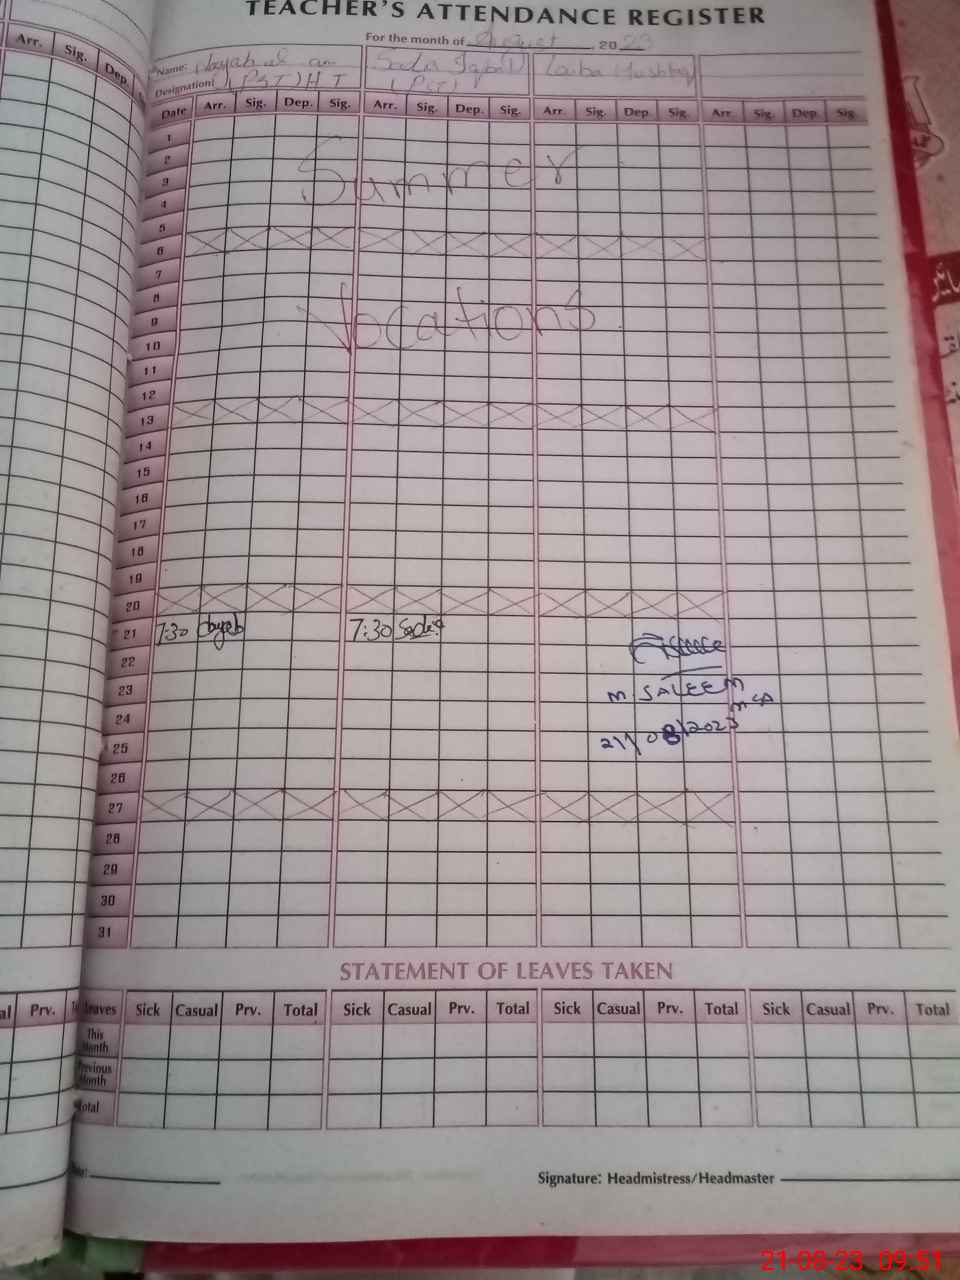 TEACHER'S ATTENDANCE REGISTER
For the month of August, 2023
Name: Sadia Iqbal Laiba Mushtaq
Designation: (PST) HT (PST)
Date Arr. Sig. Dep. Sig. Arr. Sig. Dep. Sig. Arr. Sig. Dep. Sig. Arr. Sig. Dep. Sig.
Arr. Sig. Dep.
1
2
Summer
3
4
5
6
7
8
Vocations
9
10
11
12
13
14
15
16
17
18
19
20
21 7:30 7:30 Sadia
22
23 M. SALEEM
MEA
24
21/08/2023
25
26
27
28
29
30
31
STATEMENT OF LEAVES TAKEN
Prv. Leaves Sick Casual Prv. Total Sick Casual Prv. Total Sick Casual Prv. Total Sick Casual Prv. Total
This Month
Previous Month
Total
Signature: Headmistress/Headmaster
21-08-23 09:51